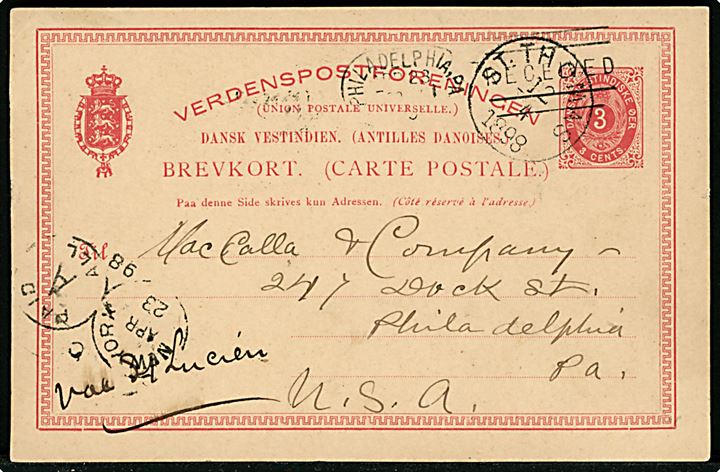 VERDENSPOSTFORENINGEN
(UNION POSTALE UNIVERSELLE.)
DANSK VESTINDIEN. (ANTILLES DANOISES.)
BREVKORT. (CARTE POSTALE.)
Paa denne Side skrives kun Adressen. (Côté réservé à l'adresse.)
PHILADELPHIA, PA
RECEIVED
ST. THOMAS
12
4
1898
3
3 CENTS
Til
MacCalla & Company –
247 Dock St.
Philadelphia
Pa.
U. S. A.
PAID
ALL
NEW YORK
APR
23
98
Lucien